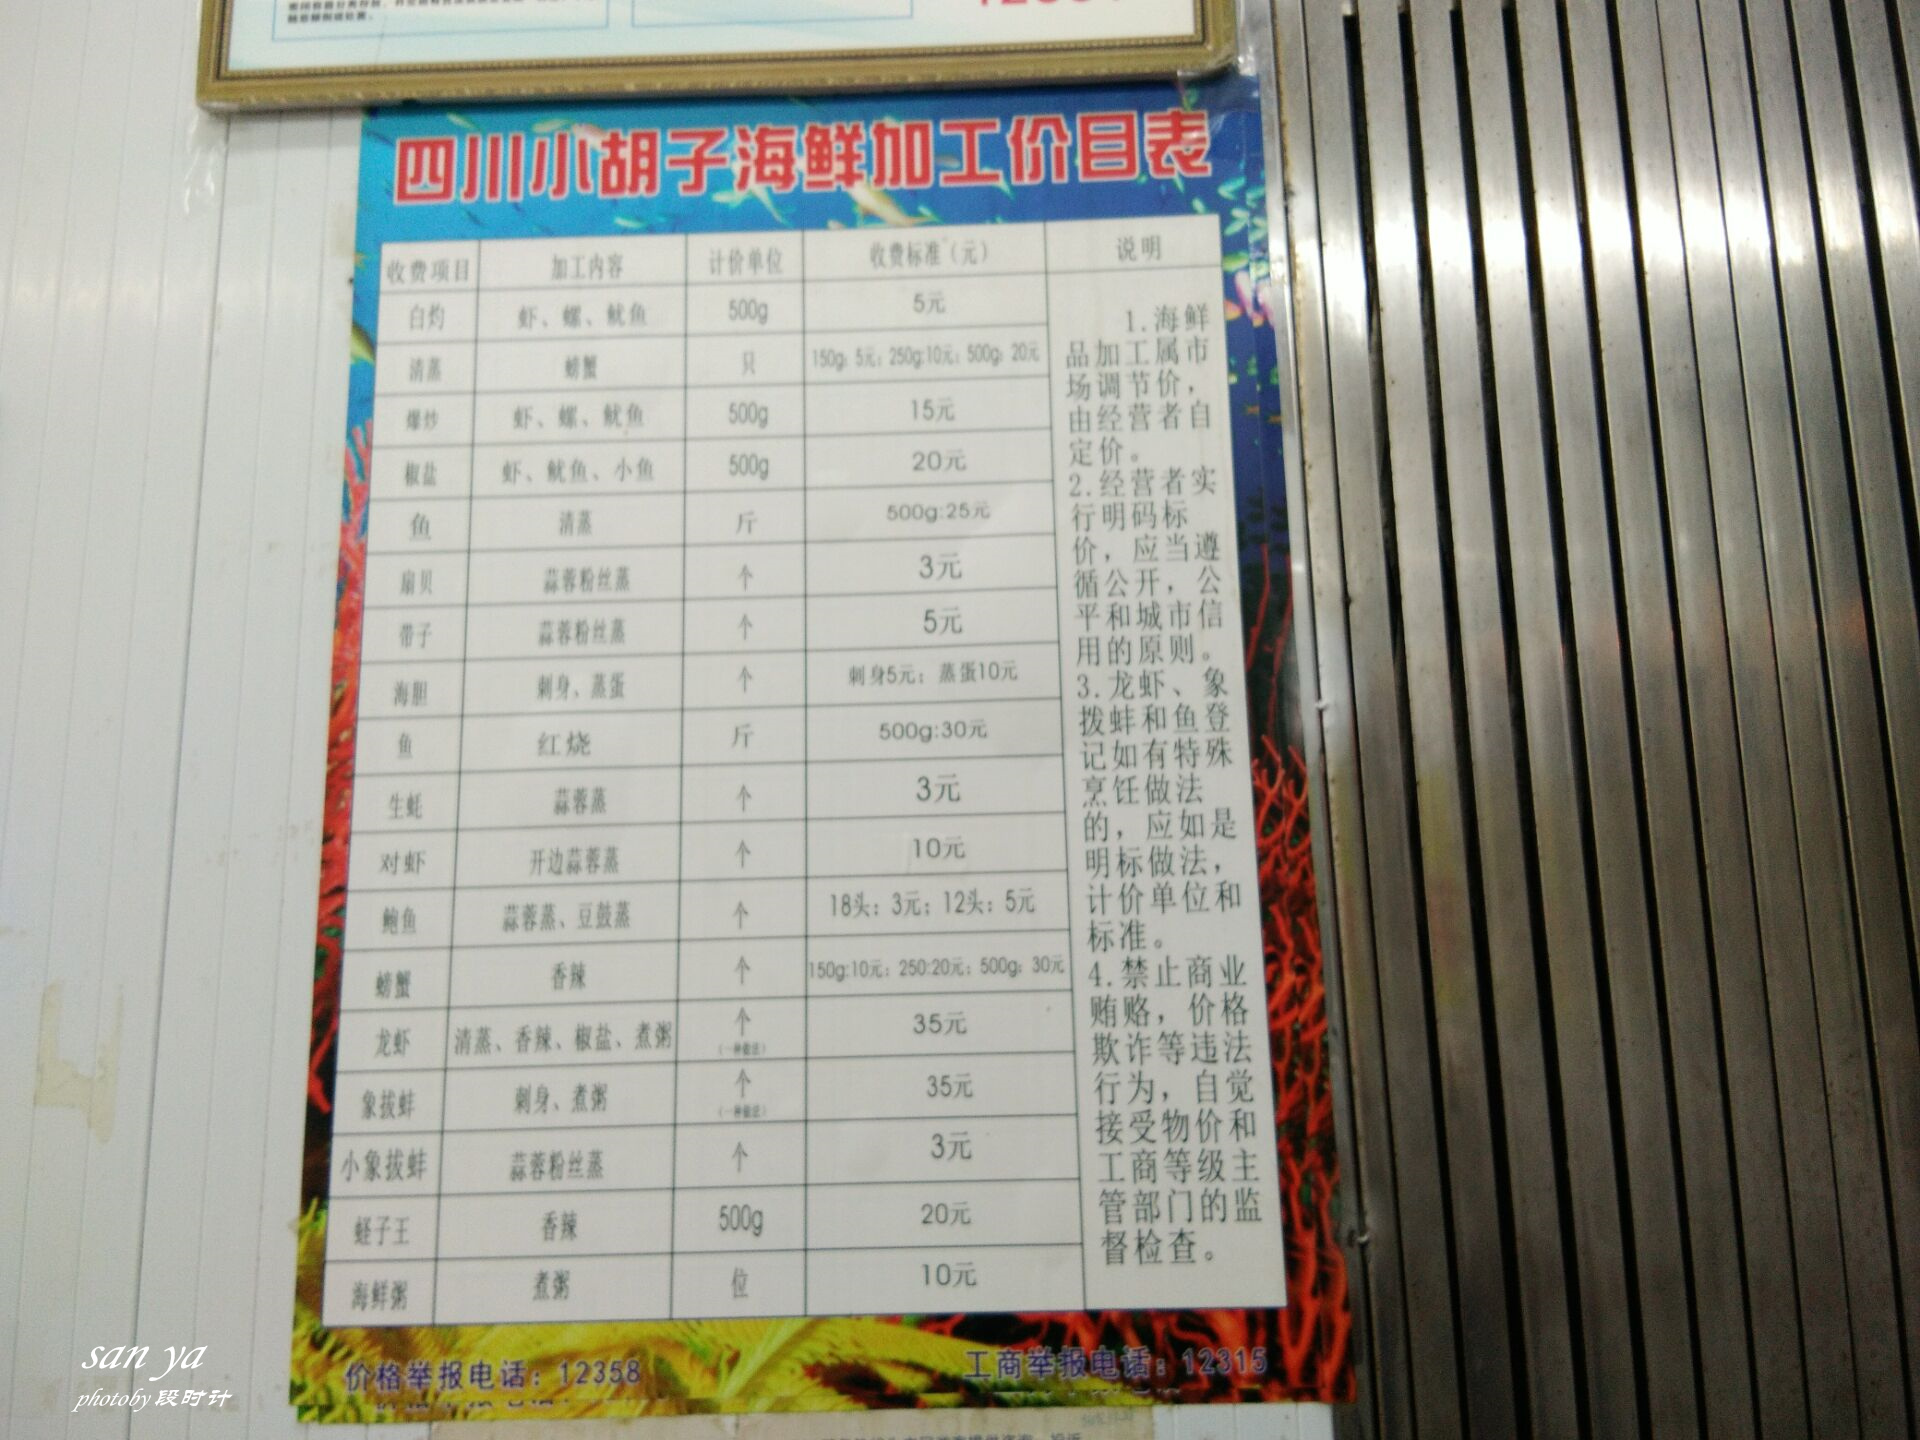 四川小胡子海鲜加工价目表
收费项目 加工内容 计价单位 收费标准(元) 说明
白灼 虾、螺、鱿鱼 500g 5元
清蒸 螃蟹 只 150g: 5元; 250g:10元; 500g: 20元
爆炒 虾、螺、鱿鱼 500g 15元
椒盐 虾、鱿鱼、小鱼 500g 20元
鱼 清蒸 斤 500g:25元
扇贝 蒜蓉粉丝蒸 个 3元
带子 蒜蓉粉丝蒸 个 5元
海胆 刺身、蒸蛋 个 刺身5元; 蒸蛋10元
鱼 红烧 斤 500g:30元
生蚝 蒜蓉蒸 个 3元
对虾 开边蒜蓉蒸 个 10元
鲍鱼 蒜蓉蒸、豆鼓蒸 个 18头: 3元; 12头: 5元
螃蟹 香辣 个 150g:10元; 250:20元; 500g: 30元
龙虾 清蒸、香辣、椒盐、煮粥 个 (一种做法) 35元
象拔蚌 刺身、煮粥 个 (一种做法) 35元
小象拔蚌 蒜蓉粉丝蒸 个 3元
蛏子王 香辣 500g 20元
海鲜粥 煮粥 位 10元
1.海鲜
品加工属市
场调节价，
由经营者自
定价。
2.经营者实
行明码标
价，应当遵
循公开，公
平和城市信
用的原则。
3.龙虾、象
拨蚌和鱼登
记如有特殊
烹饪做法
的，应如是
明标做法，
计价单位和
标准。
4.禁止商业
贿赂，价格
欺诈等违法
行为，自觉
接受物价和
工商等级主
管部门的监
督检查。
价格举报电话：12358
工商举报电话：12315
san ya
photoby 段时计